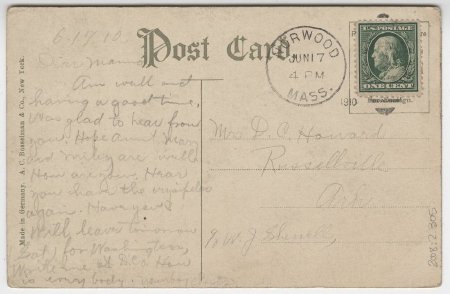 6-17-10
Post Card
NORWOOD
JUN 17
4 PM
MASS.
1910
U.S. POSTAGE
ONE CENT
Dear Mama
Am well and
having a good time,
was glad to hear from
you. Hope Aunt Mary
and are well.
How are you. Hear
you have the
again. Have you?
Will leave tomorrow
(Sat) for Washington,
Write me at D.C. How
is every body.
Mrs D. C. Howard
Russellville
Ark
c/o W. J.
Made in Germany. A. C. Bosselman & Co., New York.
2008.2.305